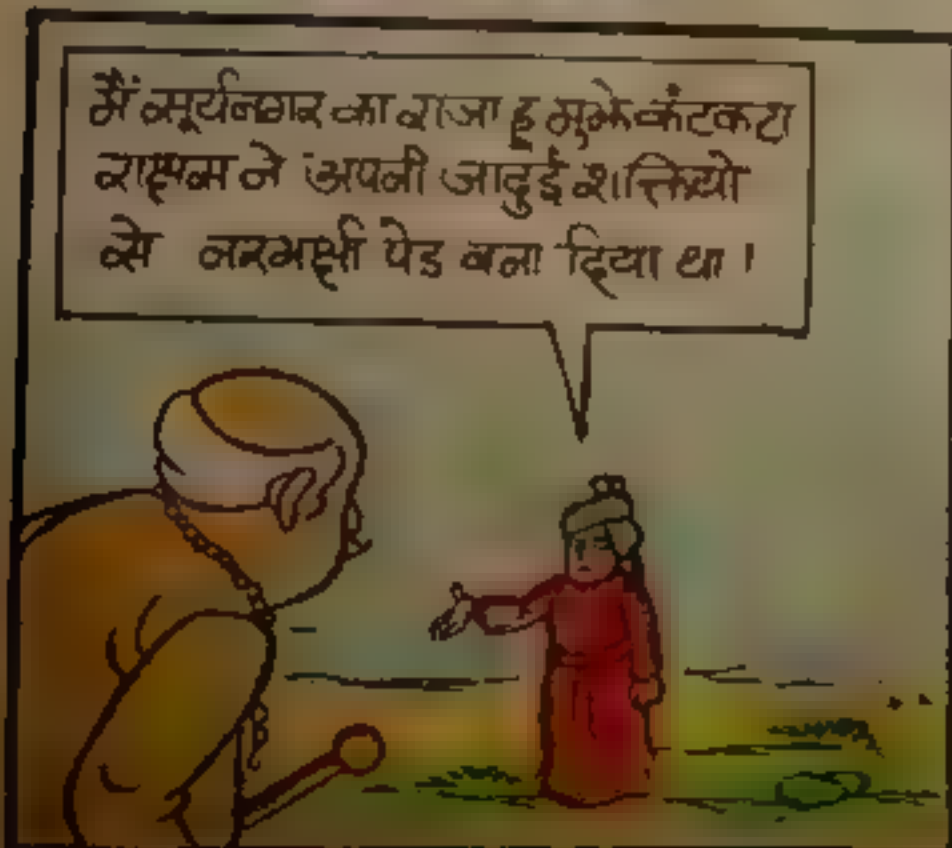 मैं सूर्यनगर का राजा हू मुझे कंटकटा
राक्षस ने अपनी जादुई शक्तियो
से नरभक्षी पेड बना दिया था।